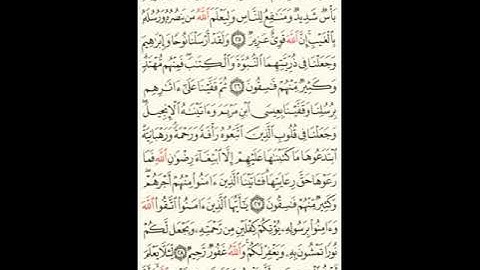 بَأْسٌ شَدِيدٌ وَمَنَٰفِعُ لِلنَّاسِ وَلِيَعْلَمَ ٱللَّهُ مَن يَنصُرُهُۥ وَرُسُلَهُۥ
بِٱلْغَيْبِ إِنَّ ٱللَّهَ قَوِىٌّ عَزِيزٌ ٢٥ وَلَقَدْ أَرْسَلْنَا نُوحًا وَإِبْرَٰهِيمَ
وَجَعَلْنَا فِى ذُرِّيَّتِهِمَا ٱلنُّبُوَّةَ وَٱلْكِتَٰبَ فَمِنْهُم مُّهْتَدٍ
وَكَثِيرٌ مِّنْهُمْ فَٰسِقُونَ ٢٦ ثُمَّ قَفَّيْنَا عَلَىٰٓ ءَاثَٰرِهِم
بِرُسُلِنَا وَقَفَّيْنَا بِعِيسَى ٱبْنِ مَرْيَمَ وَءَاتَيْنَٰهُ ٱلْإِنجِيلَ
وَجَعَلْنَا فِى قُلُوبِ ٱلَّذِينَ ٱتَّبَعُوهُ رَأْفَةً وَرَحْمَةً وَرَهْبَانِيَّةً
ٱبْتَدَعُوهَا مَا كَتَبْنَٰهَا عَلَيْهِمْ إِلَّا ٱبْتِغَآءَ رِضْوَٰنِ ٱللَّهِ فَمَا
رَعَوْهَا حَقَّ رِعَايَتِهَا فَـَٔاتَيْنَا ٱلَّذِينَ ءَامَنُوا۟ مِنْهُمْ أَجْرَهُمْ
وَكَثِيرٌ مِّنْهُمْ فَٰسِقُونَ ٢٧ يَٰٓأَيُّهَا ٱلَّذِينَ ءَامَنُوا۟ ٱتَّقُوا۟ ٱللَّهَ
وَءَامِنُوا۟ بِرَسُولِهِۦ يُؤْتِكُمْ كِفْلَيْنِ مِن رَّحْمَتِهِۦ وَيَجْعَل لَّكُمْ
نُورًا تَمْشُونَ بِهِۦ وَيَغْفِرْ لَكُمْ وَٱللَّهُ غَفُورٌ رَّحِيمٌ ٢٨ لِّئَلَّا يَعْلَمَ